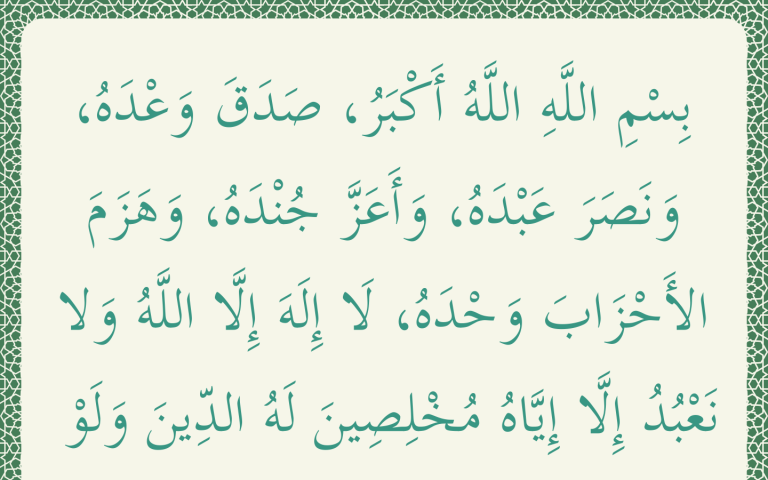 بِسْمِ اللَّهِ اللَّهُ أَكْبَرُ، صَدَقَ وَعْدَهُ،
وَنَصَرَ عَبْدَهُ، وَأَعَزَّ جُنْدَهُ، وَهَزَمَ
الأَحْزَابَ وَحْدَهُ، لَا إِلَهَ إِلَّا اللَّهُ وَلا
نَعْبُدُ إِلَّا إِيَّاهُ مُخْلِصِينَ لَهُ الدِّينَ وَلَوْ